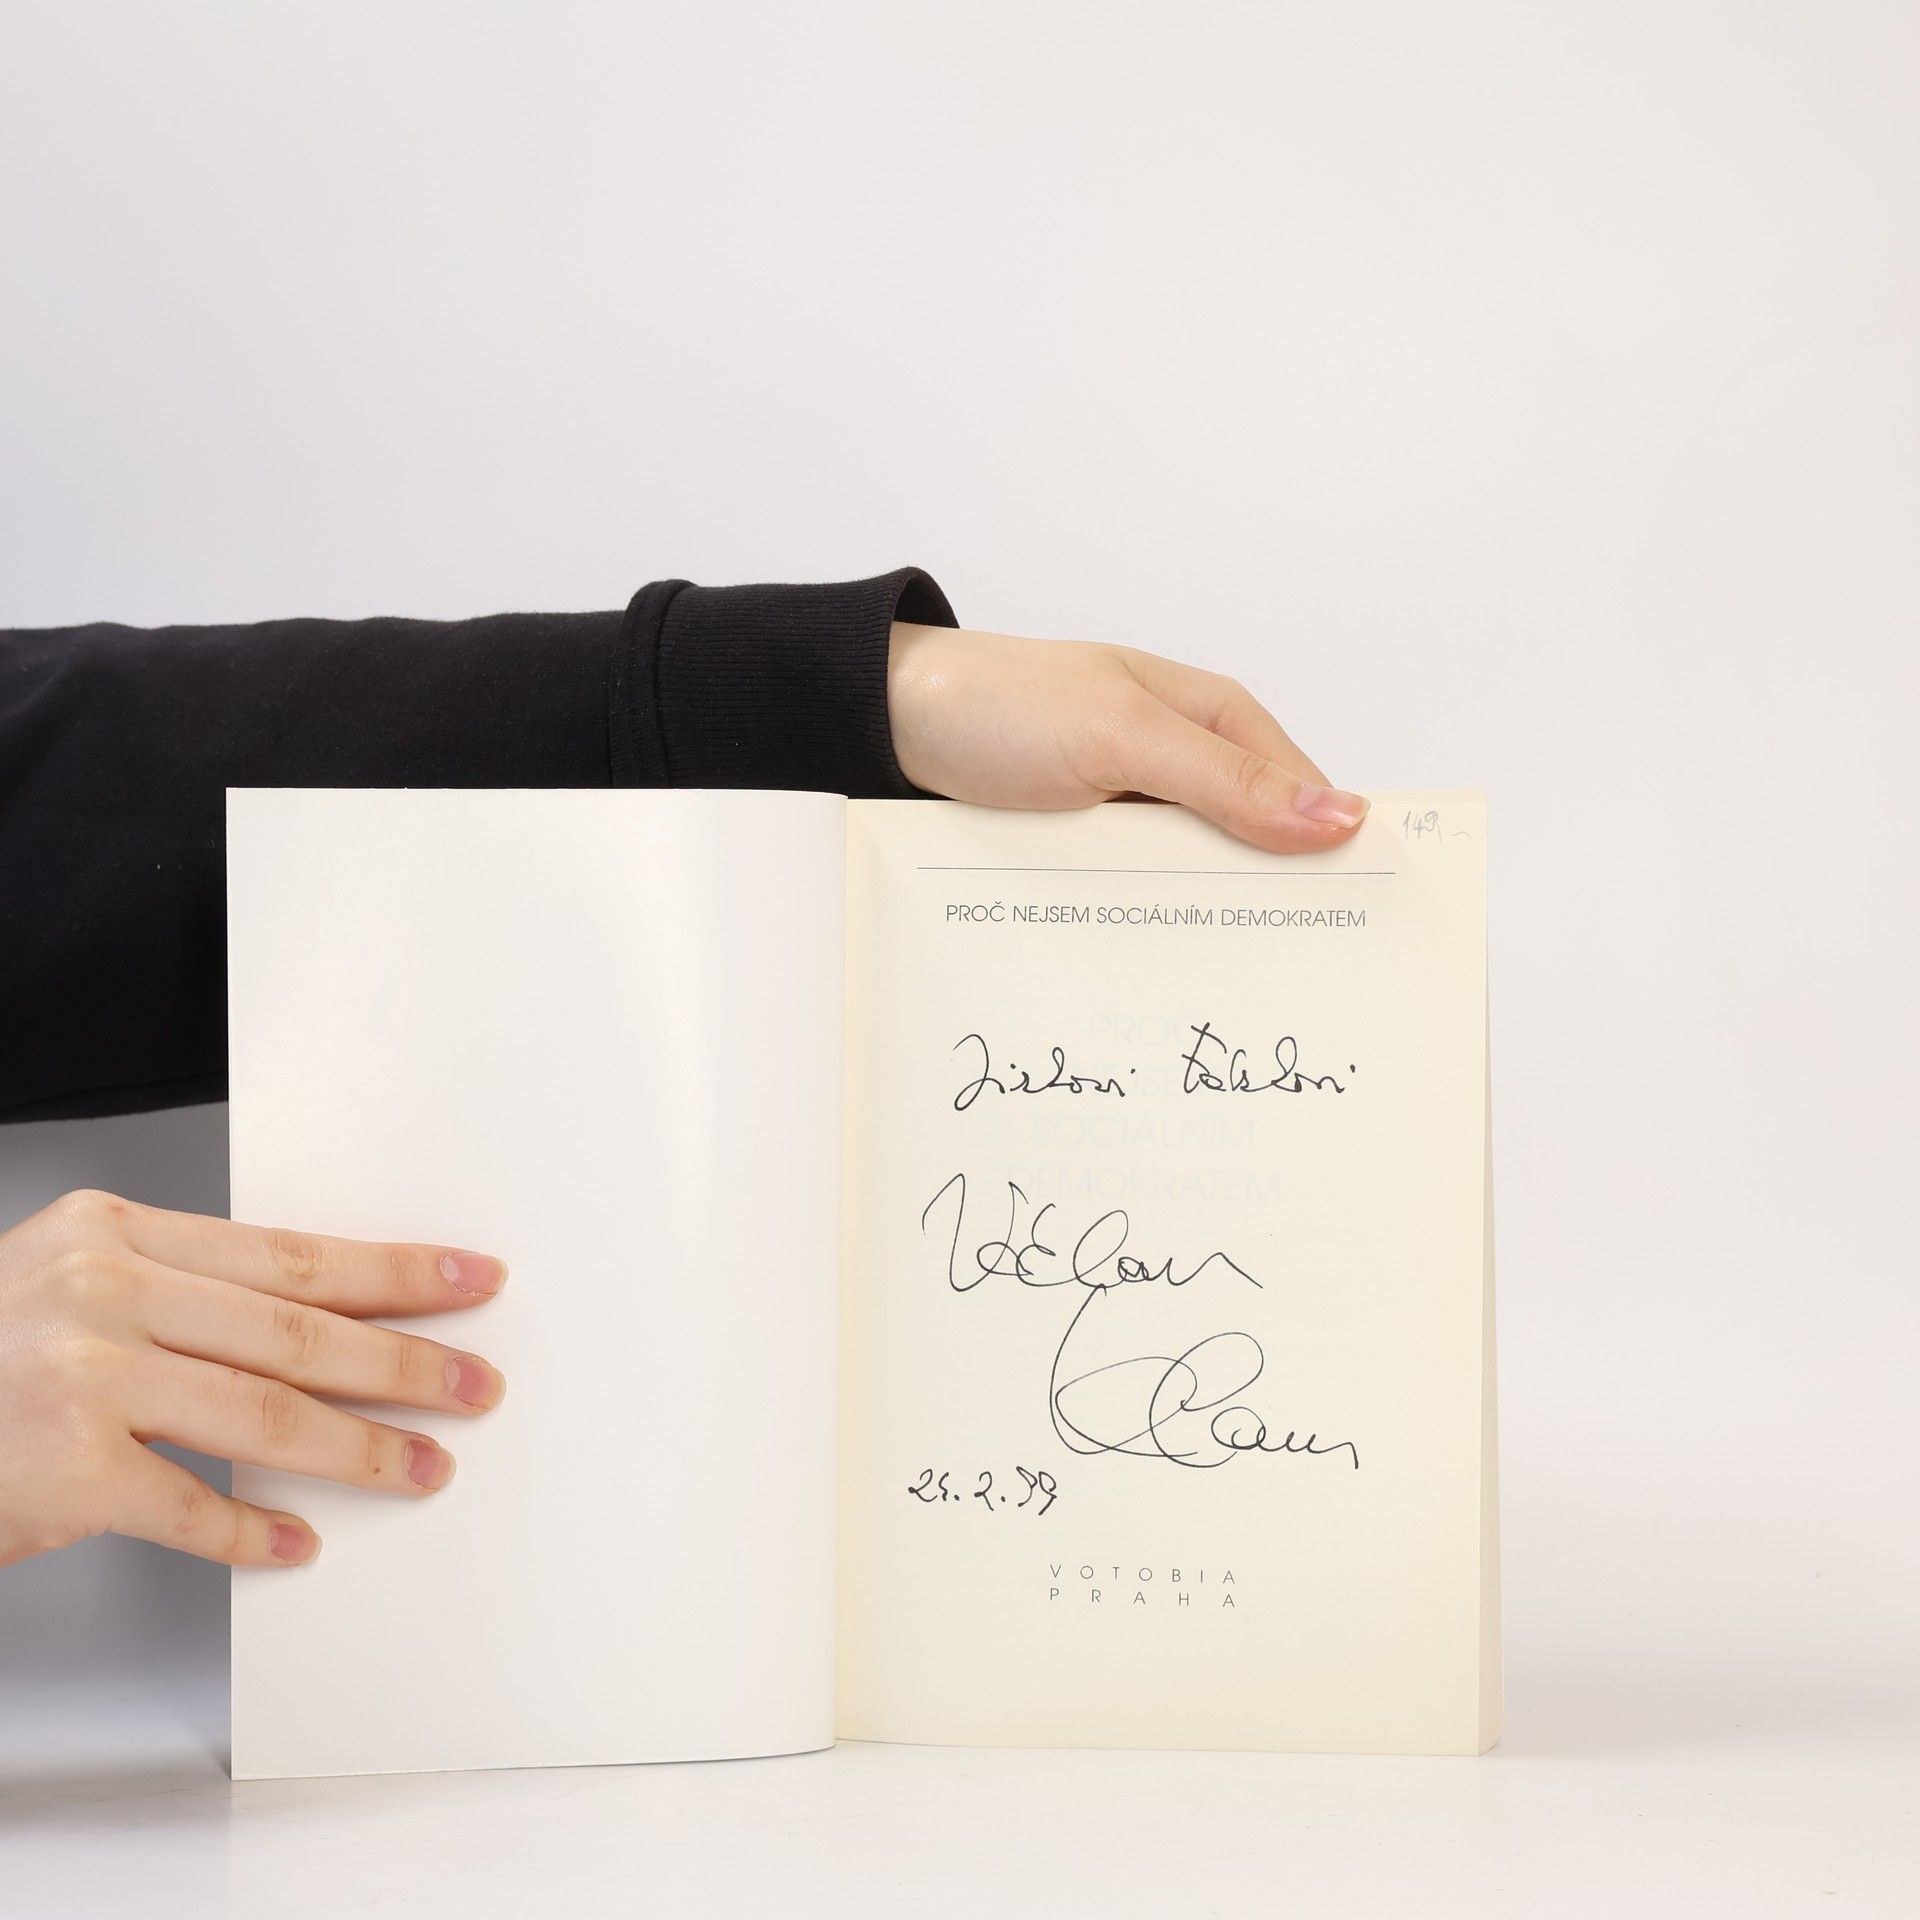 149,-
PROČ NEJSEM SOCIÁLNÍM DEMOKRATEM
PROČ
NEJSEM
SOCIÁLNÍM
DEMOKRATEM
Václav
Klaus
2.99
VOTOBIA
PRAHA